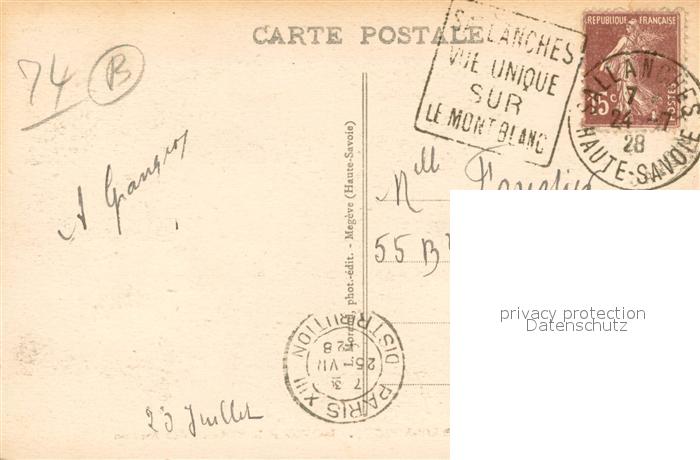 74 B
CARTE POSTALE
SALLANCHES
VUE UNIQUE
SUR
LE MONT BLANC
REPUBLIQUE FRANÇAISE
15c
POSTES
SALLANCHES
7
24 - 7
28
HAUTE-SAVOIE
Mlle
55 B
phot.-édit. - Megève (Haute-Savoie)
PARIS XIII
7 3
25 VII
28
DISTRIBUTION
23 Juillet
privacy protection
Datenschutz